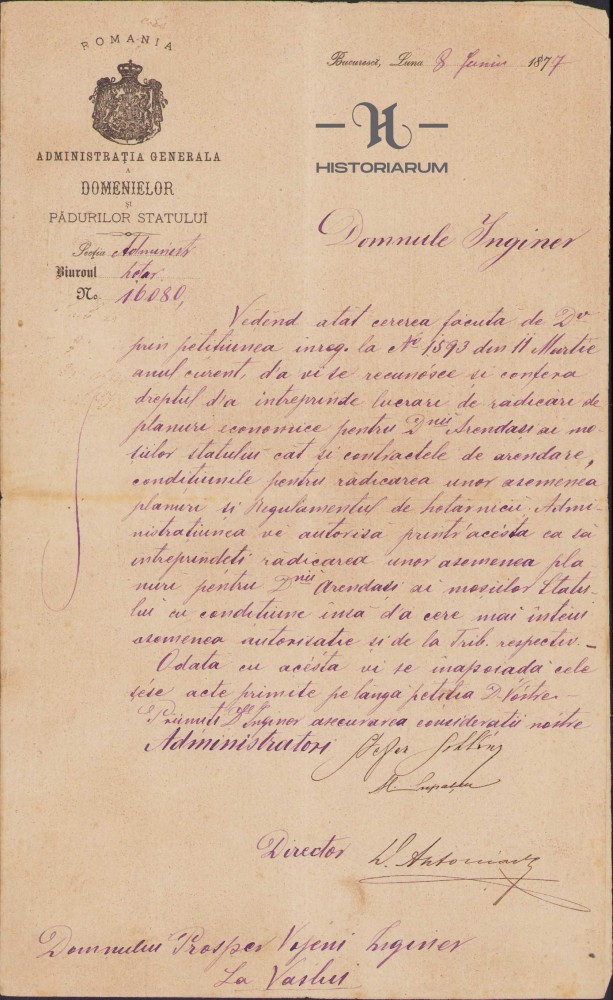 ROMANIA
ADMINISTRAȚIA GENERALA
A
DOMENIELOR
ȘI
PĂDURILOR STATULUĬ
Bucurescĭ, Luna 8 Juniu 1877
HISTORIARUM
Secția Administ
Biuroul hotar
No. 16080,
Domnule Inginer
Vedind atât cererea facuta de Dv
prin petitiunea inreg. la No 1593 din 11 Martie
anul curent, d'a vi se recunosce si confera
dreptul d'a intreprinde lucrari de radicari de
planuri economice pentru Dnii Arendasi ai mo
siilor statului cât si contractele de arendare,
conditiunile pentru radicarea unor asemenea
planuri si Regulamentul de hotarnicii. Admi-
nistratiunea ve autorisă printr'acésta ca să
intreprindeti radicarea unor asemenea pla
nuri pentru Dnii Arendasi ai mosiilor Statu-
lui cu conditiune însă d'a cere mai înteiu
asemenea autorisatie si de la Trib. respectiv.-
Odata cu acésta vi se inapoiadă cele
sése acte primite pe langa petitia D-Vóstre.-
Primiti Dle Inginer asecurarea consideratii nostre
Administratori
M. Lupașcu
Director
Domnului Prosper Inginer
La Vaslui